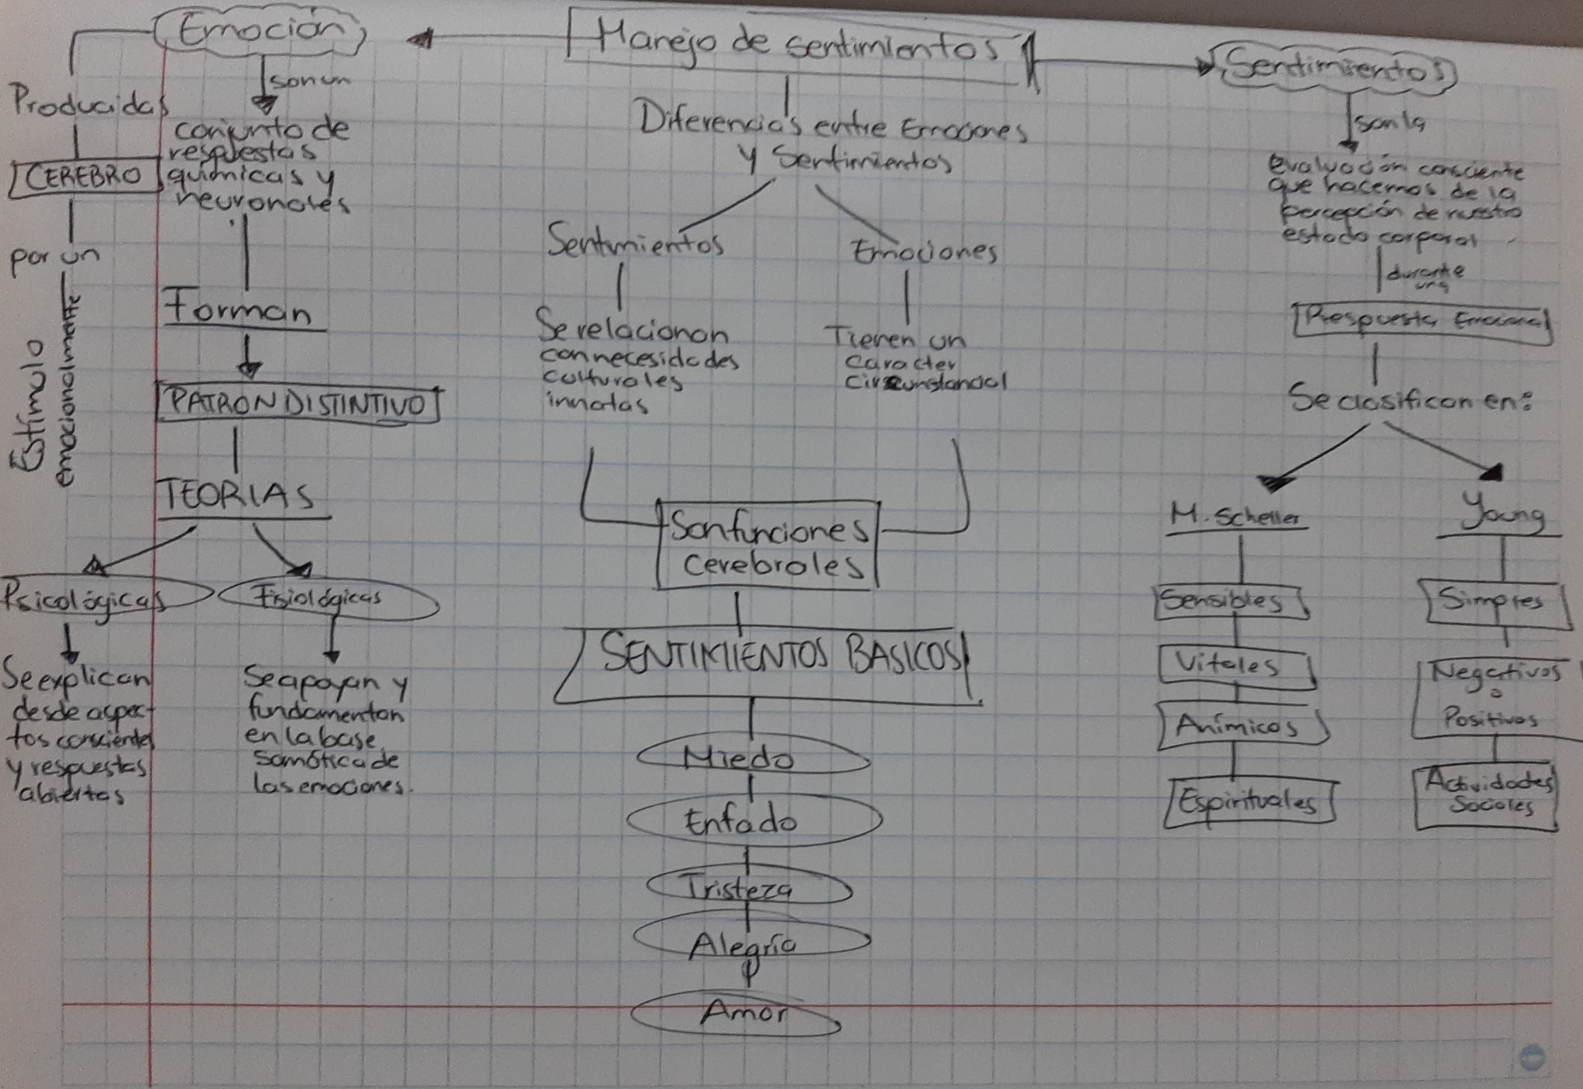 Manejo de sentimientos
Emoción
Producidas
CEREBRO
por un
Estímulo
emocionalmente
son un
conjunto de
respuestas
químicas y
neuronales
Forman
PATRON DISTINTIVO
TEORIAS
Psicológicas
Se explican
desde aspec
tos conscientes
y respuestas
abiertas
Fisiológicas
Se apoyan y
fundamentan
en la base
somática de
las emociones.
Diferencias entre Emociones
y Sentimientos
Sentimientos
Se relacionan
con necesidades
culturales
innatas
Emociones
Tienen un
caracter
circunstancial
Son funciones
cerebrales
SENTIMIENTOS BASICOS
Miedo
Enfado
Tristeza
Alegría
Amor
Sentimientos
son la
evaluación consciente
que hacemos de la
percepción de nuestro
estado corporal
durante
una
Respuesta Emocional
Se clasifican en:
M. Scheller
Sensibles
Vitales
Anímicos
Espirituales
Young
Simples
Negativos
o
Positivos
Actividades
Sociales